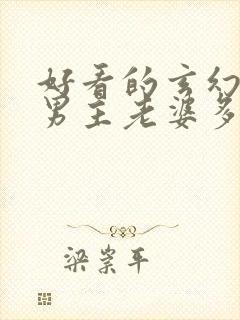 好看的玄幻
男主老婆多
梁崇平